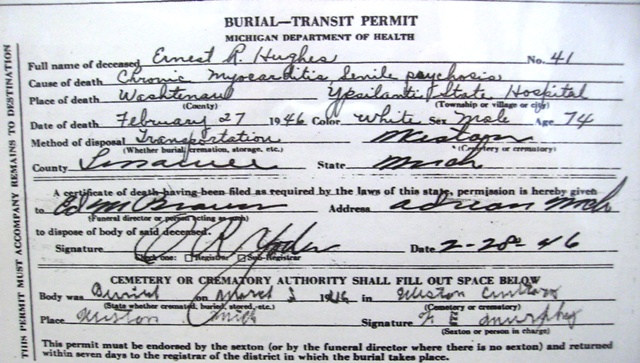 BURIAL—TRANSIT PERMIT
MICHIGAN DEPARTMENT OF HEALTH
Full name of deceased Ernest R. Hughes No. 41
Cause of death Chronic Myocarditis, Senile psychosis
Place of death Washtenaw Ypsilanti State Hospital
(County) (Township or village or city)
Date of death February 27 1946 Color White Sex Male Age 74
Method of disposal Transportation
(Whether burial, cremation, storage, etc.) (Cemetery or crematory)
County Lenawee State Mich
A certificate of death having been filed as required by the laws of this state, permission is hereby given
to Ed M Brown Address Adrian Mich
(Funeral director or person acting as such)
to dispose of body of said deceased.
Signature R. Yoder Date 2-28-46
Check one: Registrar Sub-Registrar
CEMETERY OR CREMATORY AUTHORITY SHALL FILL OUT SPACE BELOW
Body was Buried on March 1946 in
(State whether cremated, buried, stored, etc.)
Place Mich Signature Murphy
(Sexton or person in charge)
This permit must be endorsed by the sexton (or by the funeral director where there is no sexton) and returned
within seven days to the registrar of the district in which the burial takes place.
THIS PERMIT MUST ACCOMPANY REMAINS TO DESTINATION